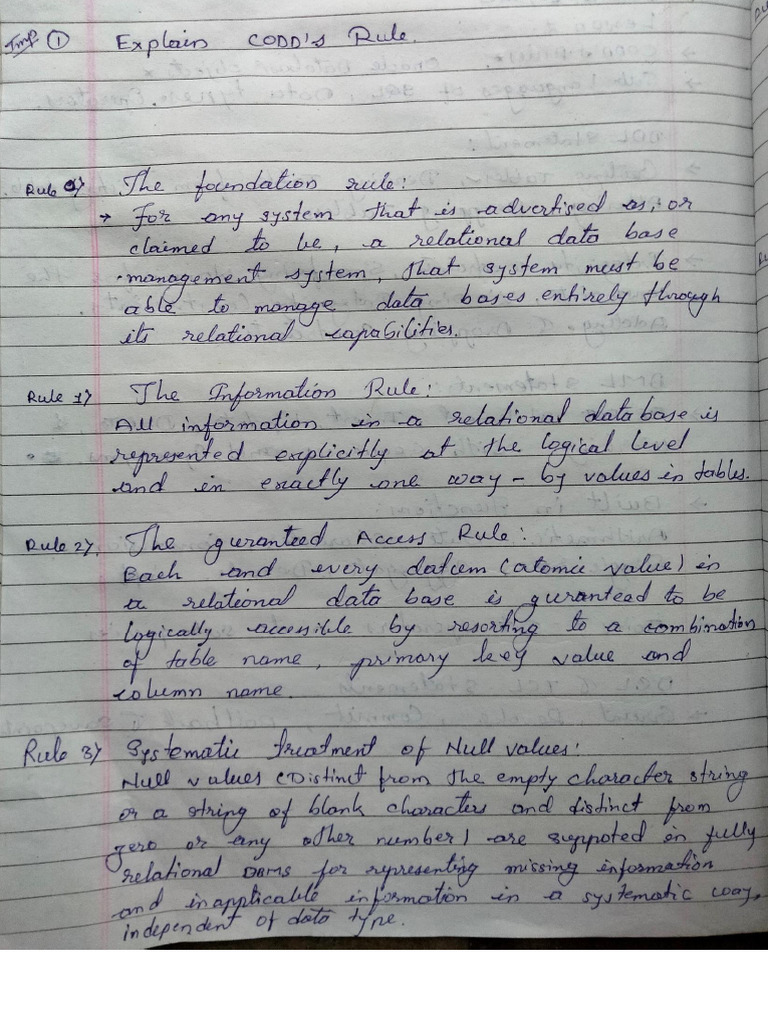 Imp ① Explain CODD's Rule.
Rule 0) The foundation rule:
→ For any system that is advertised as, or
claimed to be, a relational data base
management system, that system must be
able to manage data bases entirely through
its relational capabilities.
Rule 1) The Information Rule:
All information in a relational data base is
represented explicitly at the logical level
and in exactly one way - by values in tables.
Rule 2) The guranteed Access Rule:
Each and every datum (atomic value) in
a relational data base is guranteed to be
logically accessible by resorting to a combination
of table name, primary key value and
column name.
Rule 3) Systematic treatment of Null values:
Null values (Distinct from the empty character string
or a string of blank characters and distinct from
zero or any other number) are suppoted in fully
relational DBMS for representing missing information
and inapplicable information in a systematic way,
independent of data type.